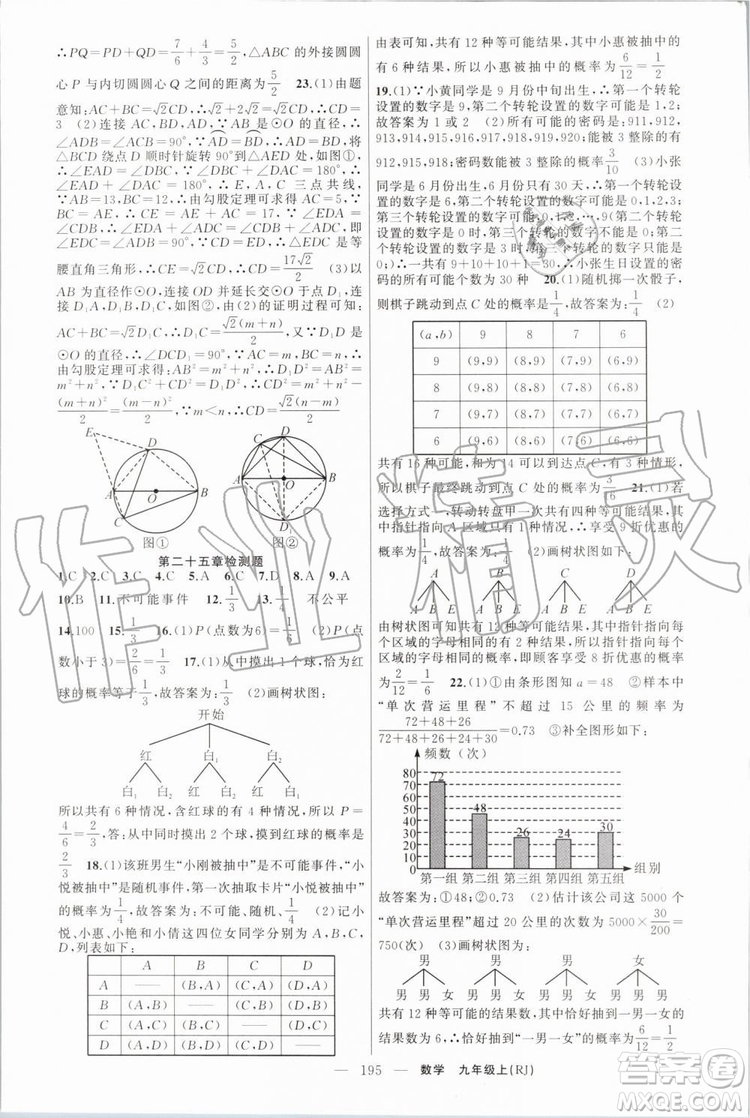 ∴PQ=PD+QD=7/6+4/3=5/2,△ABC 的外接圆圆
心 P 与内切圆圆心 Q 之间的距离为5/2 23.(1)由题
意知:AC+BC=√2CD,∴√2+2√2=√2CD,∴CD=
3 (2)连接 AC,BD,AD,∵AB 是⊙O 的直径,∴
∠ADB=∠ACB=90°,∵AD=BD,∴AD=BD,将
△BCD 绕点 D 顺时针旋转 90°到△AED 处,如图①,
∴∠EAD=∠DBC,∵∠DBC+∠DAC=180°,∴
∠EAD+∠DAC=180°,∴E,A,C 三点共线,
∵AB=13,BC=12,∴由勾股定理可求得:AC=5,
∵BC=AE,∴CE=AE+AC=17,∵∠EDA=
∠CDB,∴∠EDA+∠ADC=∠CDB+∠ADC,即
∠EDC=∠ADB=90°,∵CD=ED,∴△EDC 是等
腰直角三角形,∴CE=√2CD,∴CD=17√2/2 (3)以
AB 为直径作⊙O,连接 DO 并延长交⊙O 于点 D₁,连
接 D₁A,D₁B,D₁C,如图②,由(2)的证明过程可知:
AC+BC=√2D₁C,∴D₁C=√2(m+n)/2,又∵D₁D 是
⊙O 的直径,∴∠DCD₁=90°,∵AC=m,BC=n,∴
由勾股定理可求得:AB²=m²+n²,∴D₁D²=AB²=
m²+n²,∵D₁C²+CD²=D₁D²,∴CD²=m²+n²-
(m+n)²/2=(m-n)²/2,∵m<n,∴CD=√2(n-m)/2
E D A O B C
图①
C D A O B D₁
图②
第二十五章检测题
1.C 2.D 3.B 4.C 5.A 6.D 7.B 8.A 9.A
10.B 11.不可能事件 12.1/3 13.1/3 不公平
14.100 15.1/3 16.(1)P(点数为6)=1/6 (2)P(点
数小于3)=2/6=1/3 17.(1)从中摸出1个球,恰为红
球的概率等于1/3,故答案为:1/3 (2)画树状图:
开始
红 白₁ 白₂
白₁ 白₂ 红 白₂ 红 白₁
所以共有 6 种情况,含红球的情况有 4 种,所以 P=
4/6=2/3,答:从中同时摸出 2 个球,摸到红球的概率是
2/3 18.(1)该班男生“小刚被抽中”是不可能事件,“小
悦被抽中”是随机事件,第一次抽取卡片“小悦被抽中”
的概率为1/4,故答案为:不可能、随机、1/4 (2)记小
悦、小惠、小艳和小倩这四位女同学分别为 A、B、C、
D,列表如下:
A B C D
A —— (B,A) (C,A) (D,A)
B (A,B) —— (C,B) (D,B)
C (A,C) (B,C) —— (D,C)
D (A,D) (B,D) (C,D) ——
由表可知,共有 12 种等可能结果,其中小惠被抽中的
有 6 种结果,所以小惠被抽中的概率为6/12=1/2
19.(1)∵小黄同学是 9 月份中旬出生,∴第一个转轮
设置的数字是9,第二个转轮设置的数字可能是1,2;
故答案为 1 或 2 (2)所有可能的密码是:911,912,
913,914,915,916,917,918,919,920;能被 3 整除的有
912,915,918;密码数能被 3 整除的概率3/10 (3)小张
同学是 6 月份出生,6 月份只有 30 天,∴第一个转轮
设置的数字是 6,第二个转轮设置的数字可能是 0,1,2,3;
第三个转轮设置的数字可能是0,1,2,…,9(第二个转轮
设置的数字是 0 时,第三个转轮的数字不能是 0;第二
个转轮设置的数字是 3 时,第三个转轮的数字只能是
0;)∴共有9+10+10+1=30,∴小张生日设置的密
码的所有可能个数为 30 种 20.(1)随机掷一次骰子,
则棋子跳动到点 C 处的概率是1/4,故答案为:1/4 (2)
(a,b) 9 8 7 6
9 (9,9) (8,9) (7,9) (6,9)
8 (9,8) (8,8) (7,8) (6,8)
7 (9,7) (8,7) (7,7) (6,7)
6 (9,6) (8,6) (7,6) (6,6)
共有16种可能,和为14可以到达点 C,有 3 种情形,
所以棋子最终跳动到点 C 处的概率为3/16 21.(1)若
选择方式一,转动转盘甲一次共有四种等可能结果,其
中指针指向 A 区域只有1种情况,∴享受 9 折优惠的
概率为1/4 (2)画树状图如下:
A B E A B E A B E A B E
由树状图可知共有12种等可能结果,其中指针指向每
个区域的字母相同的有 2 种结果,所以指针指向每个
区域的字母相同的概率,即顾客享受 8 折优惠的概率为
2/12=1/6 22.(1)①由条形图知 a=48 ②样本中
“单次营运里程”不超过 15 公里的频率为
72+48+26/72+48+26+24+30=0.73 ③补全图形如下:
频数(次)
80
70
60
50
40
30
20
10
0
72 48 26 24 30
第一组 第二组 第三组 第四组 第五组
组别
故答案为:①48;②0.73 (2)估计该公司这 5000 个
“单次营运里程”超过 20 公里的次数为5000×30/200=
750(次) (3)画树状图为:
男 男 男 女
男 男 女 男 男 女 男 男 女 男 男 男
共有 12 种等可能的结果数,其中恰好抽到“一男一女”
的结果数为 6,∴恰好抽到“一男一女”的概率为6/12=1/2
— 195 — 数学 九年级上(RJ)
作业精灵
答案圈
MXQE.COM